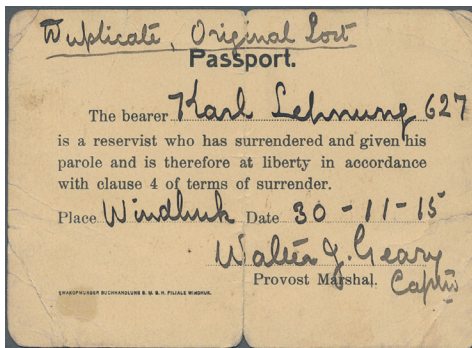 Duplicate, Original Lost
Passport.
The bearer Karl Lehnung 627
is a reservist who has surrendered and given his
parole and is therefore at liberty in accordance
with clause 4 of terms of surrender.
Place Windhuk Date 30-11-15
Walter J. Geary
Provost Marshal. Captn
SWAKOPMUNDER BUCHHANDLUNG G. M. B. H. FILIALE WINDHUK.